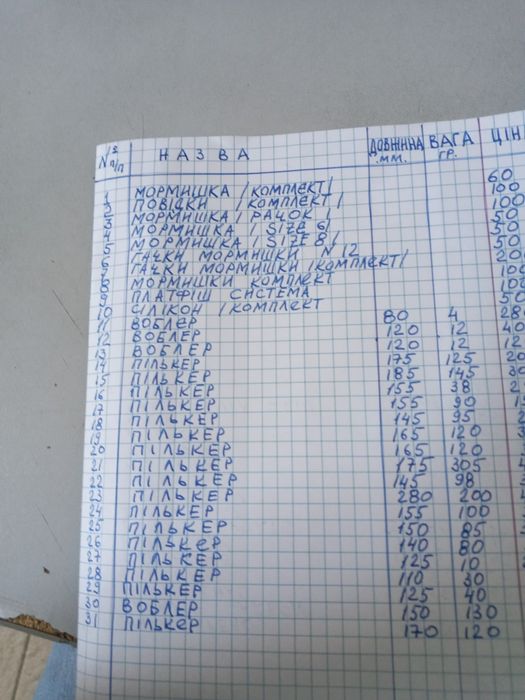 № з п/п НАЗВА ДОВЖИНА ММ. ВАГА ГР. ЦІН
1 МОРМИШКА /КОМПЛЕКТ/ 60
2 ПОВІДКИ /КОМПЛЕКТ/ 100
3 МОРМИШКА /РАЧОК/ 100
4 МОРМИШКА /SIZE 6/ 50
5 МОРМИШКА /SIZE 8/ 50
6 ГАЧКИ МОРМИШКИ N12 50
7 ГАЧКИ МОРМИШКИ /КОМПЛЕКТ/ 20
8 МОРМИШКИ КОМПЛЕКТ 10
9 ПЛАТФІШ СИСТЕМА 10
10 СІЛІКОН /КОМПЛЕКТ 50
11 ВОБЛЕР 80 4 28
12 ВОБЛЕР 120 12 40
13 ВОБЛЕР 120 12 12
14 ПІЛЬКЕР 175 125 20
15 ПІЛЬКЕР 185 145 30
16 ПІЛЬКЕР 155 38
17 ПІЛЬКЕР 155 90
18 ПІЛЬКЕР 145 95
19 ПІЛЬКЕР 165 120
20 ПІЛЬКЕР 165 120
21 ПІЛЬКЕР 175 305
22 ПІЛЬКЕР 145 98
23 ПІЛЬКЕР 280 200
24 ПІЛЬКЕР 155 100
25 ПІЛЬКЕР 150 85
26 ПІЛЬКЕР 140 80
27 ПІЛЬКЕР 125 10
28 ПІЛЬКЕР 110 30
29 ПІЛЬКЕР 125 40
30 ВОБЛЕР 150 130
31 ПІЛЬКЕР 170 120